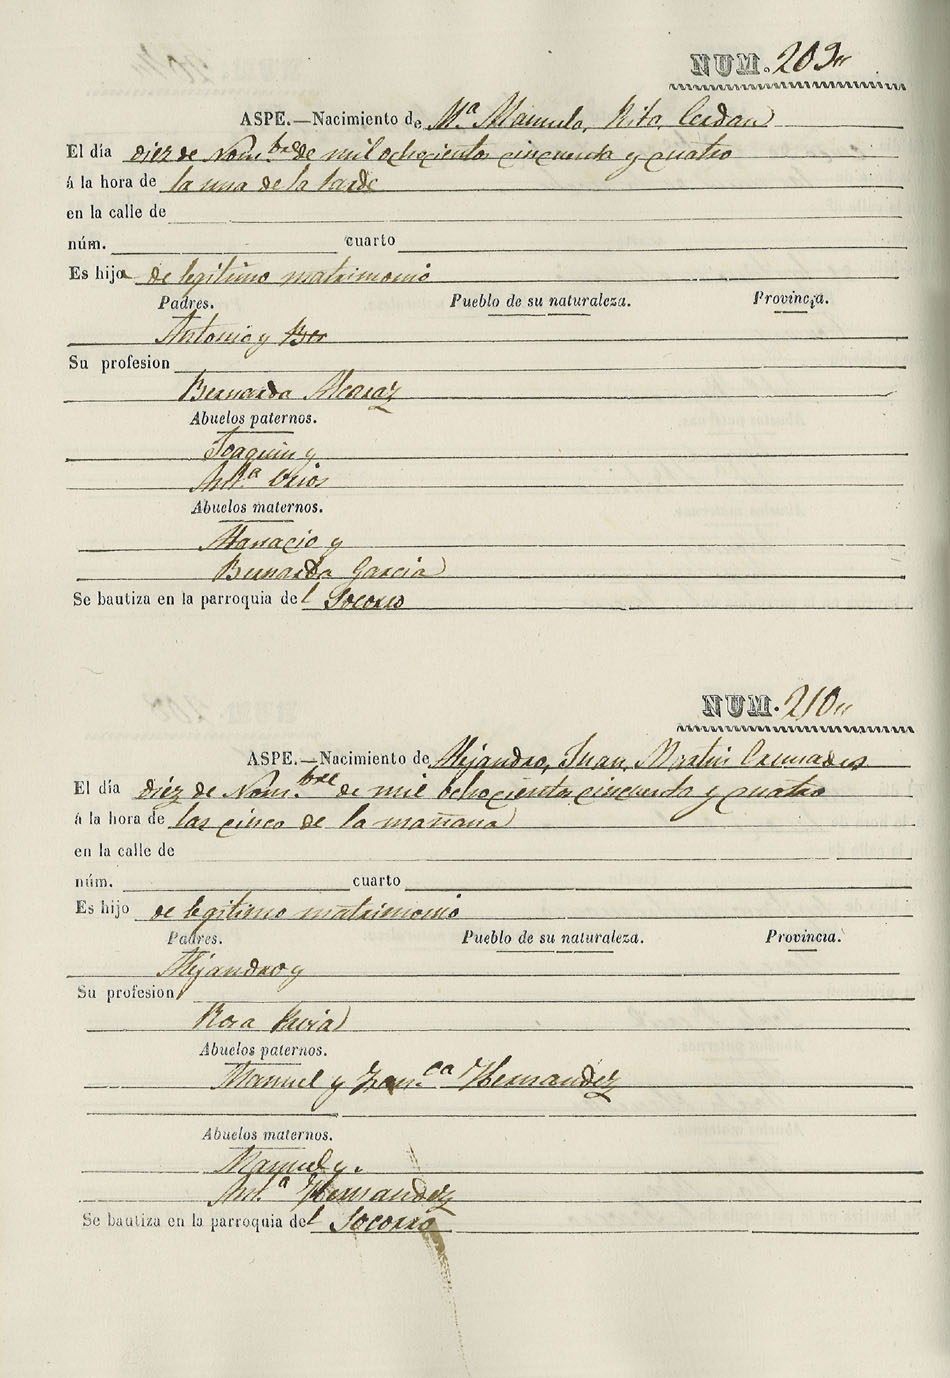 NUM. 209
ASPE.—Nacimiento de Mª Manuela, Rita, Cerdan
El día diez de Nom.bre de mil ochocientos cincuenta y cuatro
á la hora de la una de la tarde
en la calle de
núm. cuarto
Es hija de legitimo matrimonio
Padres. Pueblo de su naturaleza. Provincia.
Antonio y Ber
Su profesion
Bernarda Alcaraz
Abuelos paternos.
Joaquin y
Ant.ª
Abuelos maternos.
y
Bernarda Garcia
Se bautiza en la parroquia del Socorro
NUM. 210
ASPE.—Nacimiento de Alejandro, Juan, Martin Cremades
El día diez de Nom.bre de mil ochocientos cincuenta y cuatro
á la hora de las cinco de la mañana
en la calle de
núm. cuarto
Es hijo de legitimo matrimonio
Padres. Pueblo de su naturaleza. Provincia.
Alejandro y
Su profesion
Rosa
Abuelos paternos.
Manuel y Fran.ca Hernandez
Abuelos maternos.
Manuel y
Ant.ª Hernandez
Se bautiza en la parroquia del Socorro